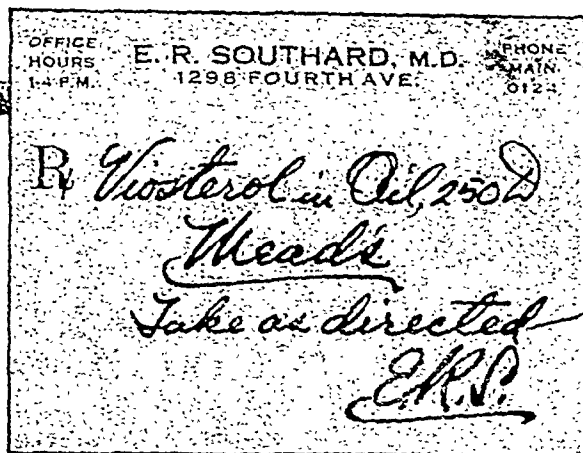 OFFICE HOURS 1-4 P.M.
E. R. SOUTHARD, M.D.
1298 FOURTH AVE.
PHONE MAIN 0124
Rx Viosterol in Oil, 250 D
Mead's
Take as directed
E.R.S.